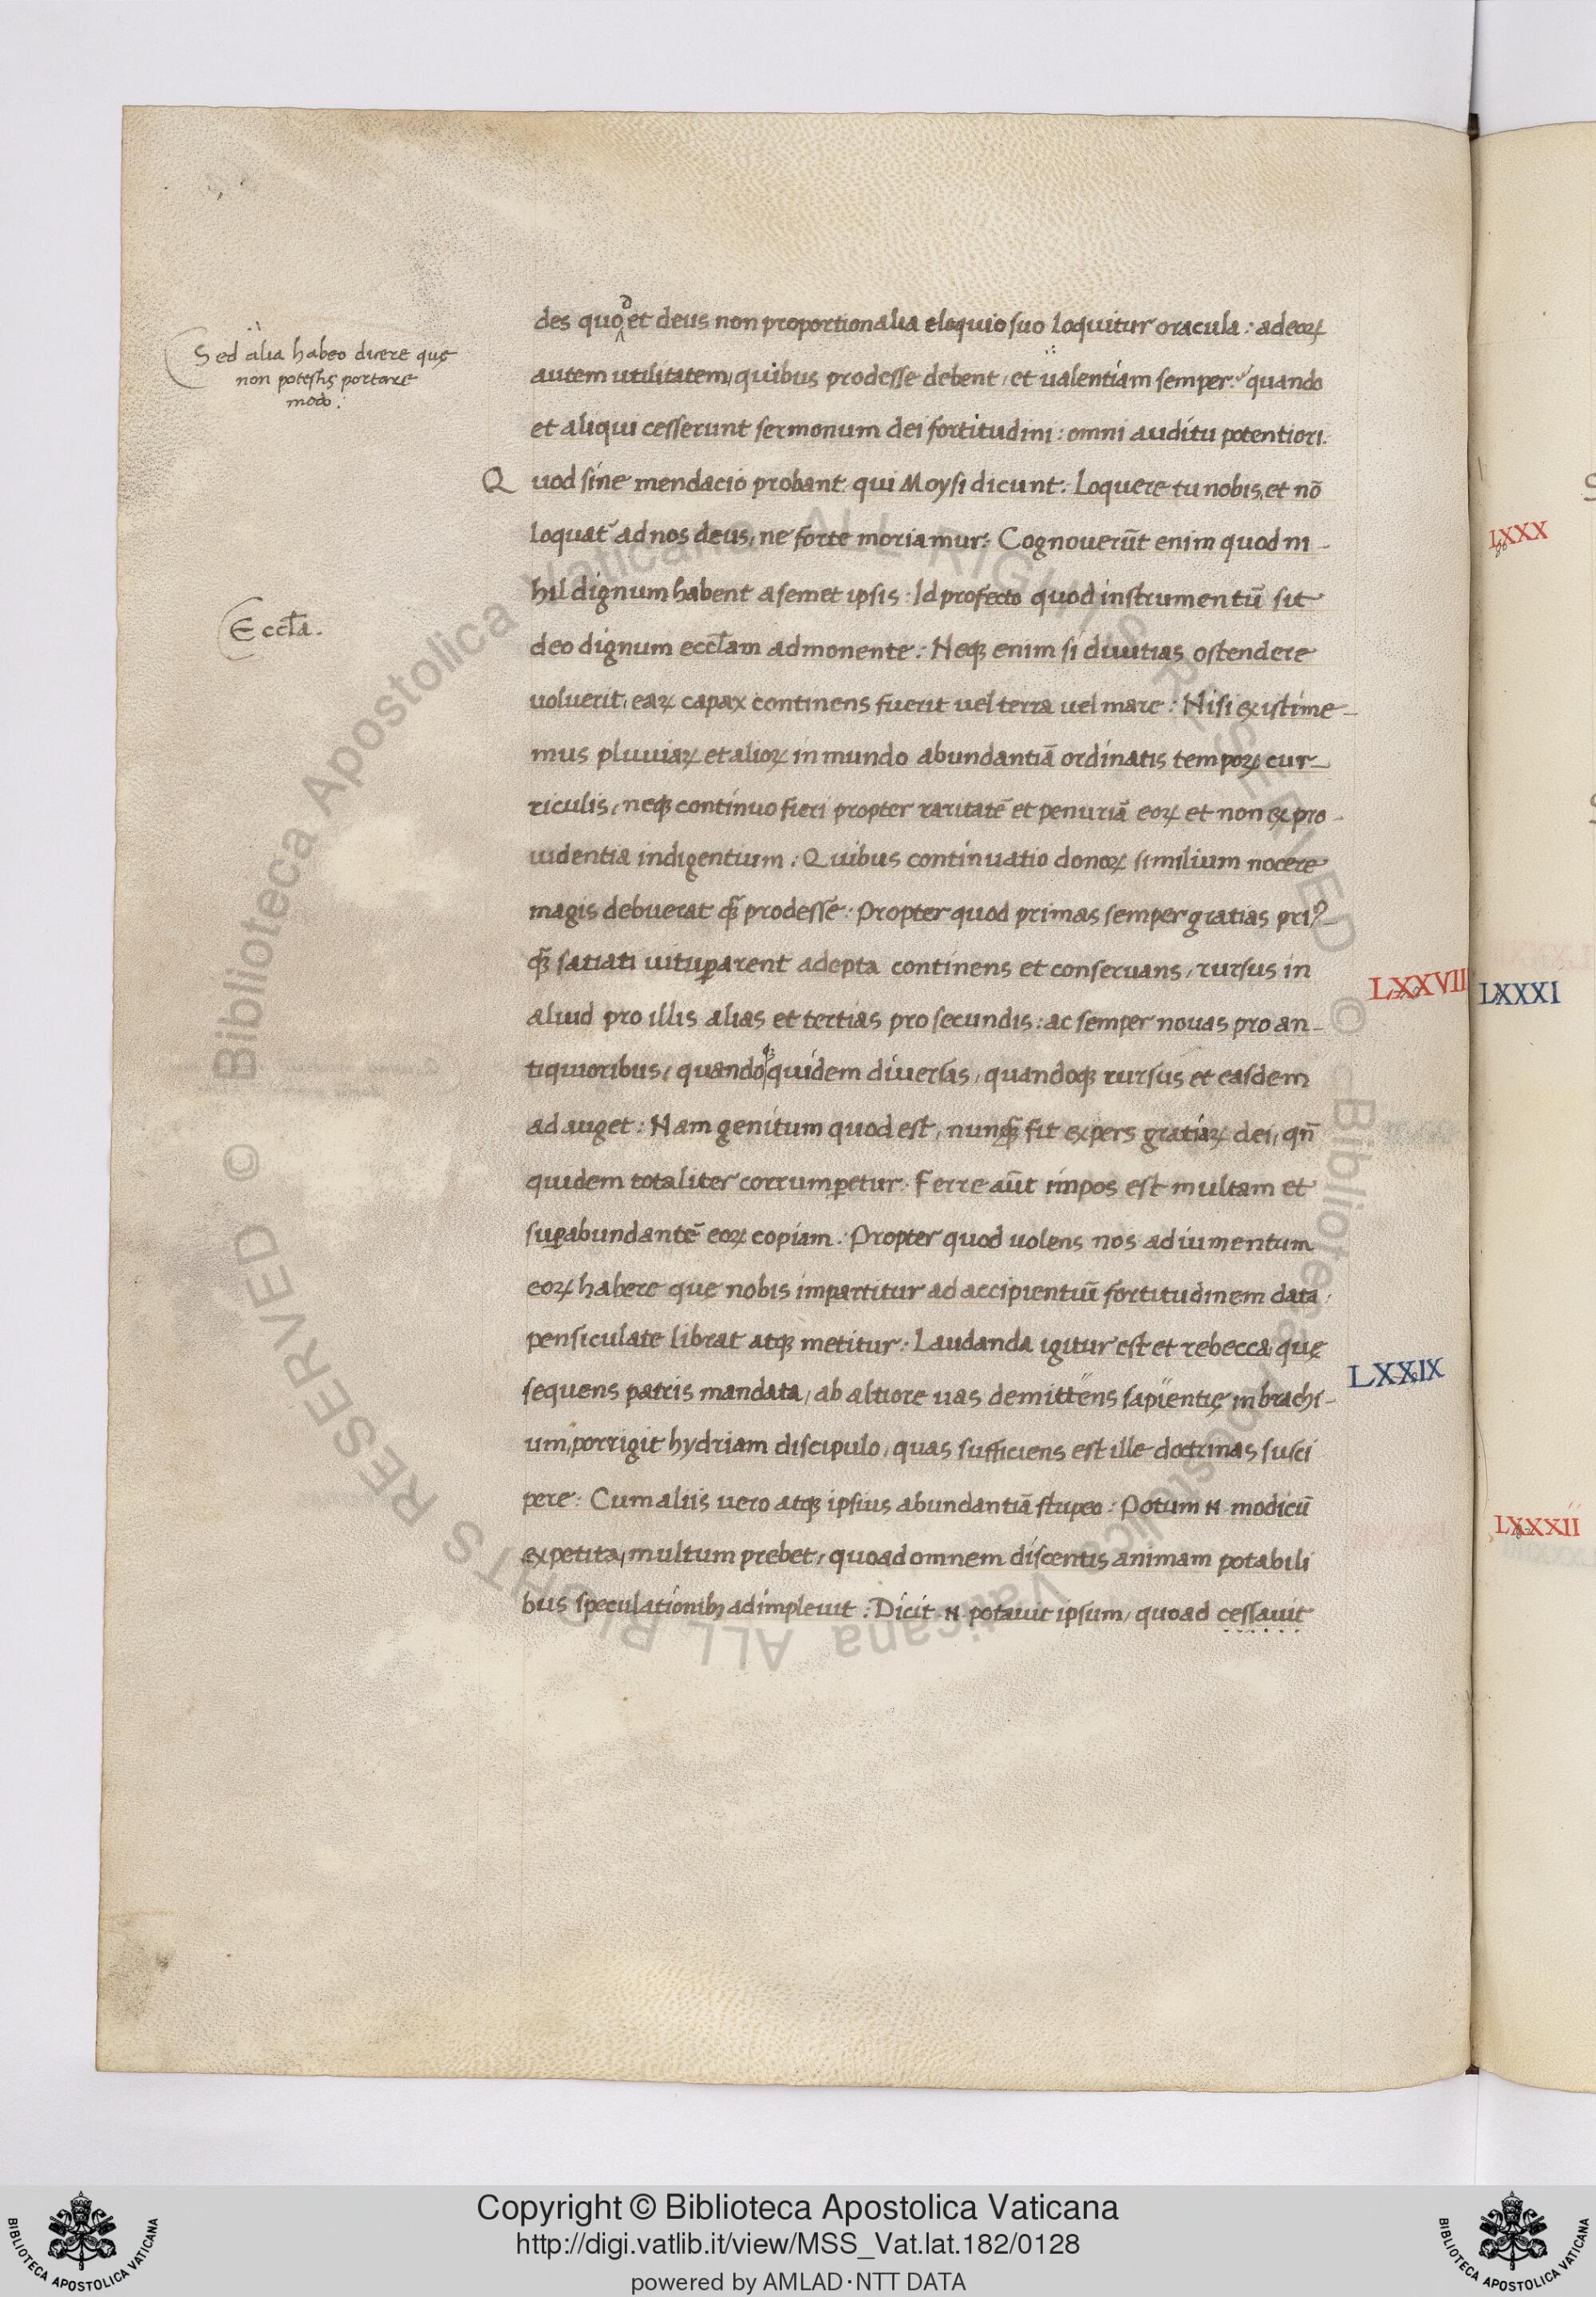 des quod et deus non proportionalia eloquio suo loquitur oracula: ad eoꝝ
autem utilitatem, quibus prodesse debent, et ualentiam semper: quando
et aliqui cesserunt sermonum dei fortitudini: omni auditu potentiori.
Quod sine mendacio probant qui Moysi dicunt: Loquere tu nobis, et nō
loquat᷑ ad nos deus, ne forte moriamur: Cognouerūt enim quod ni-
hil dignum habent a semet ipsis: Id profecto quod instrumentū sit
deo dignum eccl̄am admonente: Neqꝫ enim si diuitias ostendere
uoluerit, eaꝝ capax continens fuerit uel terra uel mare: Nisi existime-
mus pluuiaꝝ et alioꝝ in mundo abundantiā ordinatis tempoꝝ cur-
riculis, neqꝫ continuo fieri propter raritatē et penuriā eoꝝ et non ex pro-
uidentia indigentium: Quibus continuatio donoꝝ similium nocere
magis debuerat qꝫ̄ prodesse: Propter quod primas semper gratias priꝰ-
qꝫ̄ satiati uituꝑarent adepta continens et conseruans, rursus in
aliud pro illis alias et tertias pro secundis: ac semper nouas pro an-
tiquioribus, quandoqꝫ quidem diuersas, quandoqꝫ rursus et easdem
ad auget: Nam genitum quod est, nunqꝫ̄ fit expers gratiaꝝ dei, qn̄
quidem totaliter corrumpetur: Ferre aūt impos est multam et
suꝑabundantē eoꝝ copiam: Propter quod uolens nos adiumentum
eoꝝ habere quę nobis impartitur ad accipientiū fortitudinem data,
pensiculate librat atqꝫ metitur: Laudanda igitur est et rebecca, quę
sequens patris mandata, ab altiore uas demittens sapientię in brachi-
um, porrigit hydriam discipulo, quas sufficiens est ille doctrinas susci
pere: Cum aliis uero atqꝫ ipsius abundantiā stupeo: Potum .N. modicū
expetita, multum prebet, quoad omnem discentis animam potabili
bus speculationibꝫ adimpleuit: Dicit .N. potauit ipsum, quoad cessauit
Sed alia habeo dicere quę
non potestis portare
modo:
Eccl̄a.
LXXVII
LXXIX
LXXX
LXXXI
LXXXII
© Biblioteca Apostolica Vaticana ALL RIGHTS RESERVED © Biblioteca Apostolica Vaticana ALL RIGHTS RESERVED
Copyright © Biblioteca Apostolica Vaticana
http://digi.vatlib.it/view/MSS_Vat.lat.182/0128
powered by AMLAD·NTT DATA
BIBLIOTECA APOSTOLICA VATICANA
BIBLIOTECA APOSTOLICA VATICANA